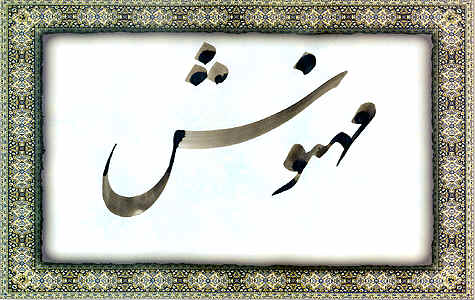 مهنوش